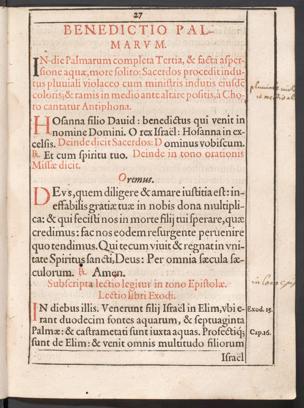 27
BENEDICTIO PAL-
MARVM.
IN die Palmarum completa Tertia, & facta asper-
sione aquæ, more solito: Sacerdos procedit indu-
tus pluuiali violaceo cum ministris indutis eiusdē
coloris; & ramis in medio ante altare positis, à Cho-
ro cantatur Antiphona.
HOsanna filio Dauid: benedictus qui venit in
nomine Domini. O rex Israël: Hosanna in ex-
celsis. Deinde dicit Sacerdos: Dominus vobiscum.
℟. Et cum spiritu tuo. Deinde in tono orationis
Missæ dicit.
Oremus.
DEvs, quem diligere & amare iustitia est: in-
effabilis gratiæ tuæ in nobis dona multipli-
ca: & qui fecisti nos in morte filij tui sperare, quæ
credimus: fac nos eodem resurgente peruenire
quo tendimus. Qui tecum viuit & regnat in vni-
tate Spiritus sancti, Deus: Per omnia sæcula sæ-
culorum. ℟. Amen.
Subscripta lectio legitur in tono Epistolæ.
Lectio libri Exodi.
IN diebus illis. Venerunt filij Israël in Elim, vbi e-
rant duodecim fontes aquarum, & septuaginta
Palmæ: & castrametati sunt iuxta aquas. Profectiq;
sunt de Elim: & venit omnis multitudo filiorum
Israël
Exod. 15.
Cap. 16.